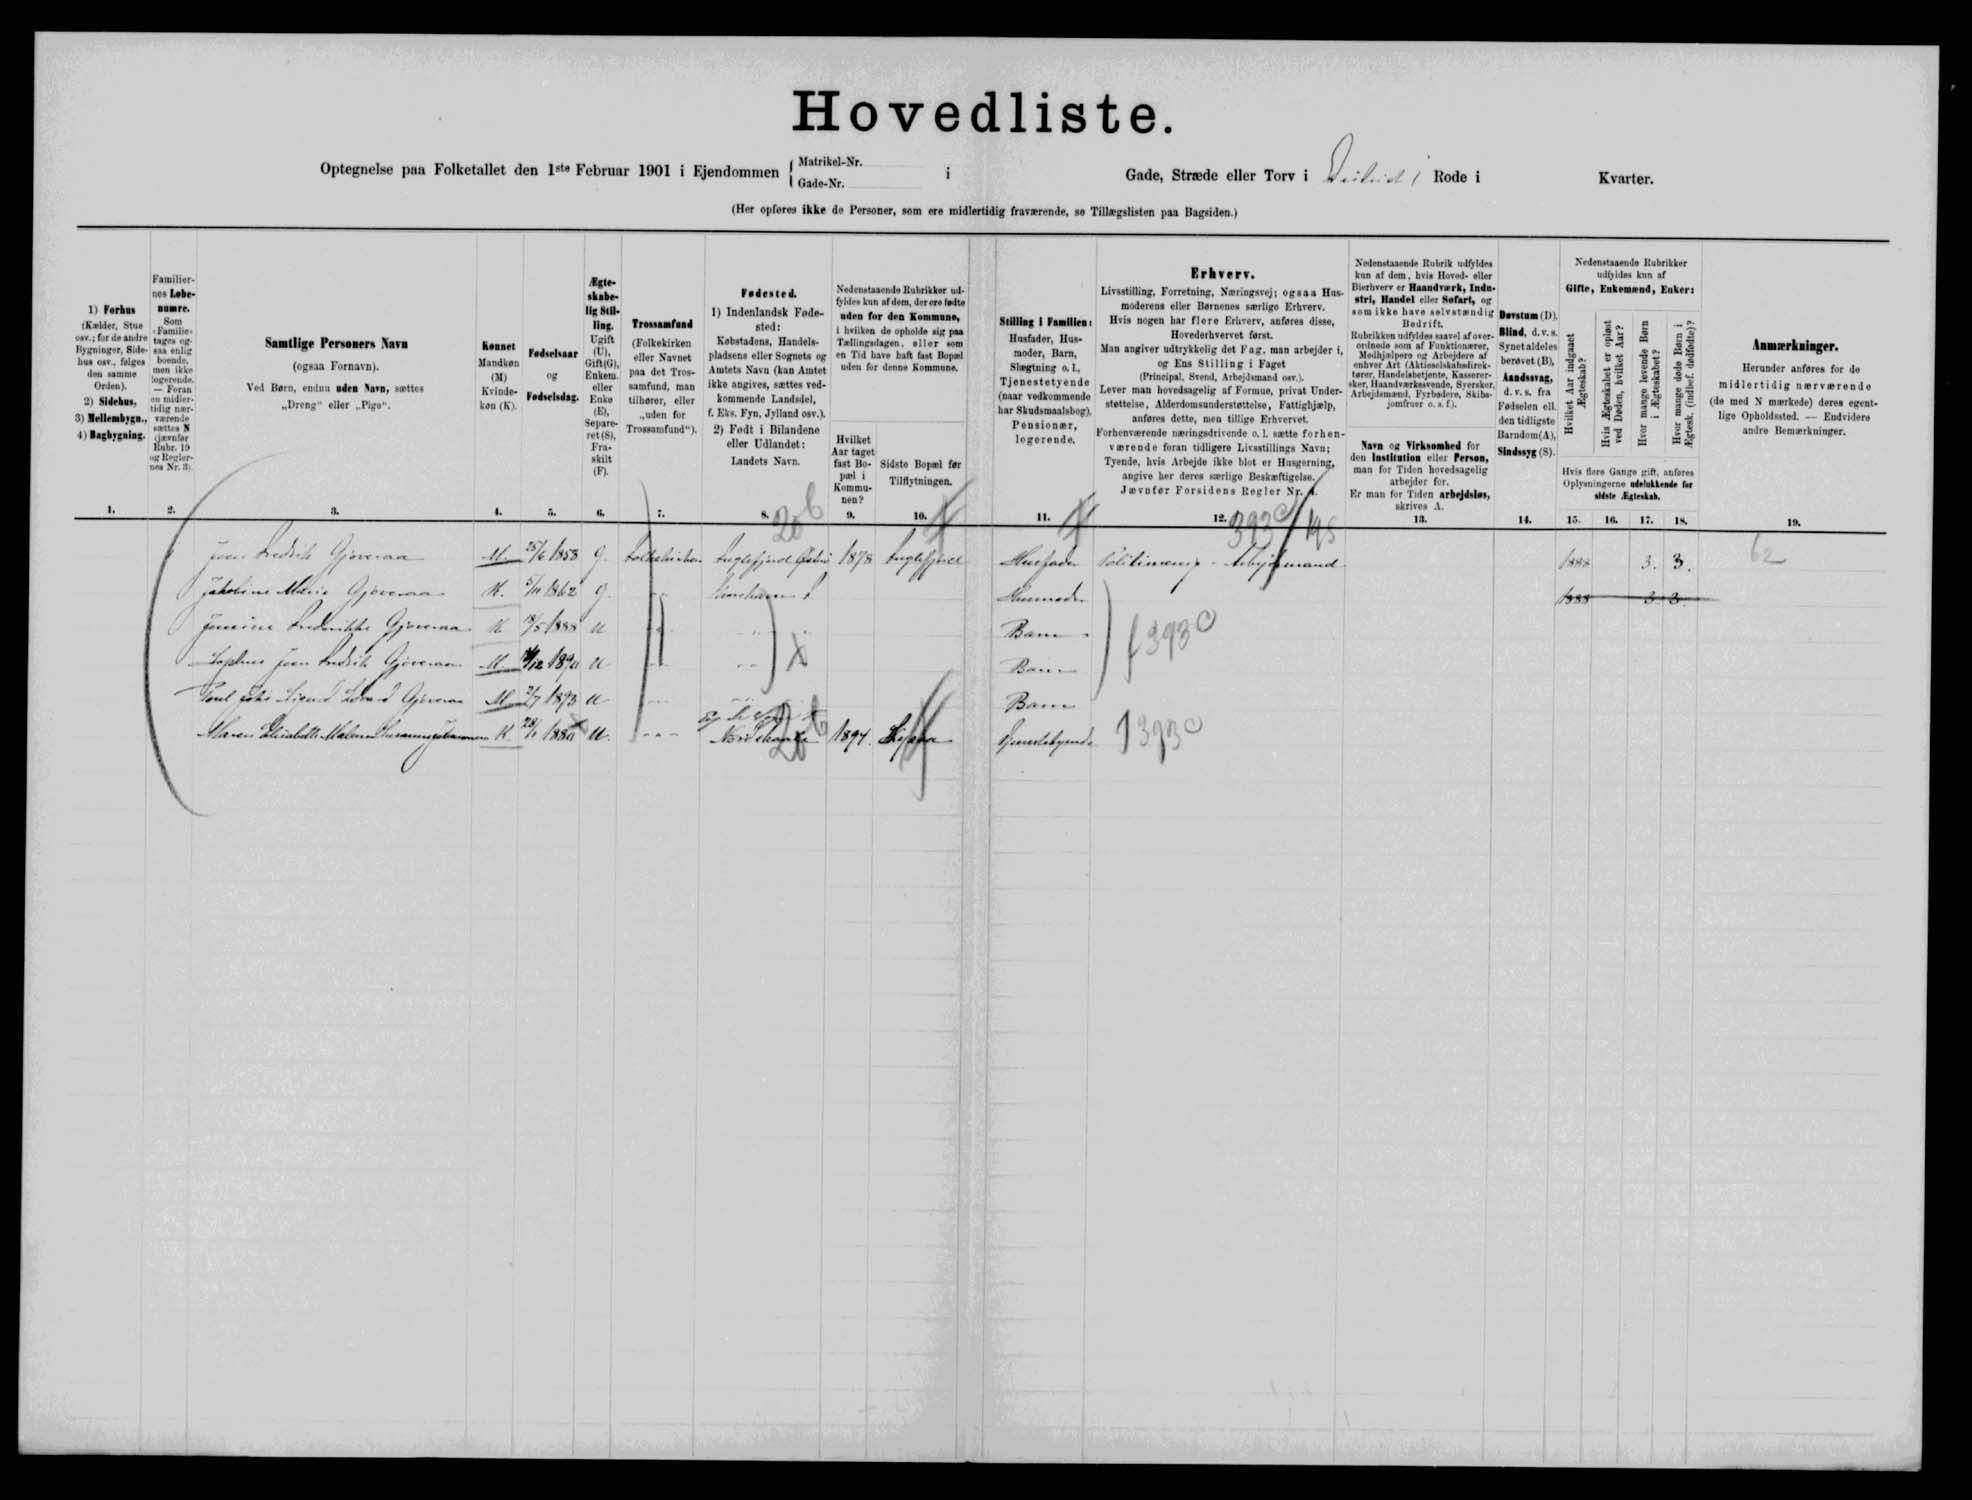 Hovedliste.
Optegnelse paa Folketallet den 1ste Februar 1901 i Ejendommen { Matrikel-Nr. i Gade, Stræde eller Torv i Rode i Kvarter.
Gade-Nr.
(Her opføres ikke de Personer, som ere midlertidig fraværende, se Tillægslisten paa Bagsiden.)
1) Forhus
(Kælder, Stue
osv.; for de andre
Bygninger, Side-
hus osv., følges
den samme
Orden).
2) Sidehus,
3) Mellembygn.,
4) Bagbygning.
1.
Familier-
nes Løbe-
numre.
Som
«Familie»
tages og-
saa enlig
boende,
men ikke
logerende.
— Foran
en midler-
tidig nær-
værende
sættes N
(jævnfør
Rubr. 19
og Regler-
nes Nr. 3).
2.
Samtlige Personers Navn
(ogsaa Fornavn).
Ved Børn, endnu uden Navn, sættes
„Dreng“ eller „Pige“.
3.
Kønnet
Mandkøn
(M)
Kvinde-
køn (K).
4.
Fødselsaar
og
Fødselsdag.
5.
Ægte-
skabe-
lig Stil-
ling.
Ugift
(U),
Gift(G),
Enkem.
eller
Enke
(E),
Separe-
ret (S),
Fra-
skilt
(F).
6.
Trossamfund
(Folkekirken
eller Navnet
paa det Tros-
samfund, man
tilhører, eller
„uden for
Trossamfund“).
7.
Fødested.
1) Indenlandsk Føde-
sted:
Købstadens, Handels-
pladsens eller Sognets og
Amtets Navn (kan Amtet
ikke angives, sættes ved-
kommende Landsdel,
f. Eks. Fyn, Jylland osv.).
2) Født i Bilandene
eller Udlandet:
Landets Navn.
8.
Nedenstaaende Rubrikker ud-
fyldes kun af dem, der ere fødte
uden for den Kommune,
i hvilken de opholde sig paa
Tællingsdagen, eller som
en Tid have haft fast Bopæl
uden for denne Kommune.
Hvilket
Aar taget
fast Bo-
pæl i
Kommu-
nen?
9.
Sidste Bopæl før
Tilflytningen.
10.
Stilling i Familien:
Husfader, Hus-
moder, Barn,
Slægtning o. l.,
Tjenestetyende
(naar vedkommende
har Skudsmaalsbog),
Pensionær,
logerende.
11.
Erhverv.
Livsstilling, Forretning, Næringsvej; ogsaa Hus-
moderens eller Børnenes særlige Erhverv.
Hvis nogen har flere Erhverv, anføres disse,
Hovederhvervet først.
Man angiver udtrykkelig det Fag, man arbejder i,
og Ens Stilling i Faget
(Principal, Svend, Arbejdsmand osv.).
Lever man hovedsagelig af Formue, privat Under-
støttelse, Alderdomsunderstøttelse, Fattighjælp,
anføres dette, men tillige Erhvervet.
Forhenværende næringsdrivende o. l. sætte forhen-
værende foran tidligere Livsstillings Navn;
Tyende, hvis Arbejde ikke blot er Husgerning,
angive her deres særlige Beskæftigelse.
Jævnfør Forsidens Regler Nr. 4.
12.
Nedenstaaende Rubrik udfyldes
kun af dem, hvis Hoved- eller
Bierhverv er Haandværk, Indu-
stri, Handel eller Søfart, og
som ikke have selvstændig
Bedrift.
Rubrikken udfyldes saavel af over-
ordnede som af Funktionærer,
Medhjælpere og Arbejdere af
enhver Art (Aktieselskabsdirek-
tører, Handelsbetjente, Kasserer-
sker, Haandværkssvende, Syersker,
Arbejdsmænd, Fyrbødere, Skibs-
jomfruer o. s. f.).
Navn og Virksomhed for
den Institution eller Person,
man for Tiden hovedsagelig
arbejder for.
Er man for Tiden arbejdsløs,
skrives A.
13.
Døvstum (D),
Blind, d. v. s.
Synet aldeles
berøvet (B),
Aandssvag,
d. v. s. fra
Fødselen ell.
den tidligste
Barndom (A),
Sindssyg (S).
14.
Nedenstaaende Rubrikker
udfyldes kun af
Gifte, Enkemænd, Enker:
Hvilket Aar indgaaet
Ægteskab?
Hvis Ægteskabet er opløst
ved Døden, hvilket Aar?
Hvor mange levende Børn
i Ægteskabet?
Hvor mange døde Børn i
Ægtesk. (indbef. dødfødte)?
Hvis flere Gange gift, anføres
Oplysningerne udelukkende for
sidste Ægteskab.
15. 16. 17. 18.
Anmærkninger.
Herunder anføres for de
midlertidig nærværende
(de med N mærkede) deres egent-
lige Opholdssted. — Endvidere
andre Bemærkninger.
19.
20b 393c
Joen Fredrik Gjoveraa M. 25/6 1858 G. Folkekirken Fuglefjord 1878 Fuglefjord Husfader Arbejdsmand 1888 3. 3. 62
Jakobine Maria Gjoveraa K. 5/11 1862 G. Thorshavn Husmoder 1888 3 3
Fredrikke Gjoveraa K 18/5 1888 U Barn f 393c
Joen Fredrik Gjoveraa M /12 1890 U Barn
Sigurd Gjoveraa M 2/7 1893 U Barn
Maren Elisabeth Malene K. 28/1 1880 U. 20b 1897. Tjenestetyende f 393c